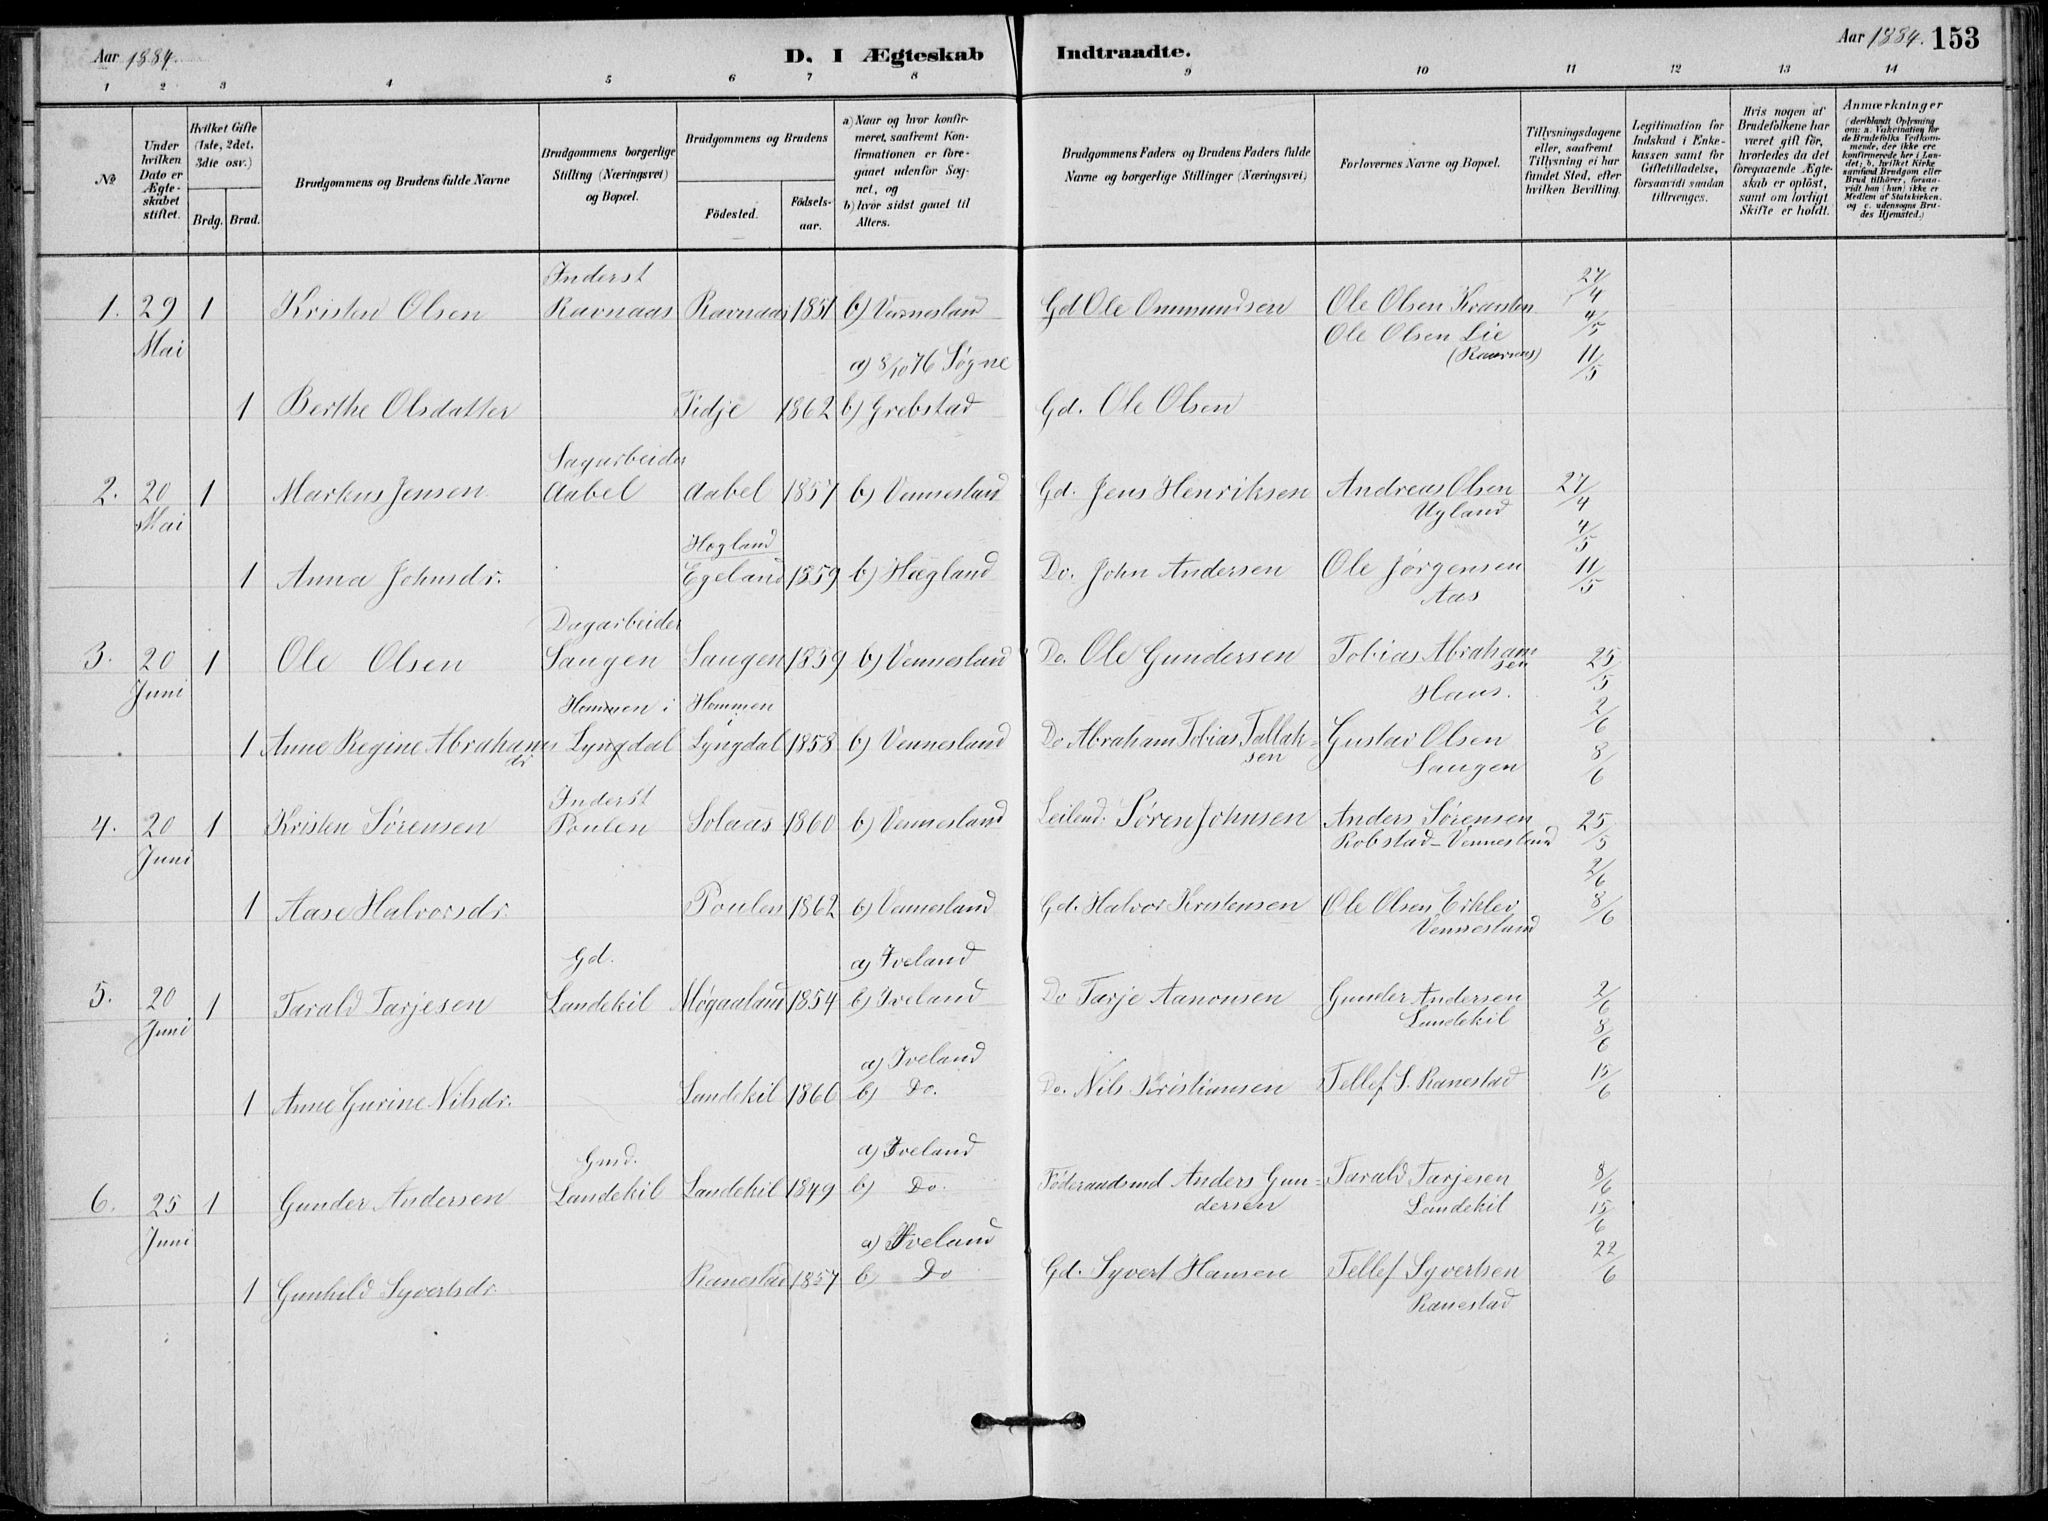 Aar 1884.
D. I Ægteskab Indtraadte.
Aar 1884. 153
1 2 3 4 5 6 7 8 9 10 11 12 13 14
No
Under hvilken Dato er Ægteskabet stiftet.
Hvilket Gifte (1ste, 2det, 3die osv.)
Brdg. Brud.
Brudgommens og Brudens fulde Navne
Brudgommens borgerlige Stilling (Næringsvei) og Bopæl.
Brudgommens og Brudens
Födested. Födselsaar.
a) Naar og hvor konfirmeret, saafremt Konfirmationen er foregaaet udenfor Sognet, og
b) hvor sidst gaaet til Alters.
Brudgommens Faders og Brudens Faders fulde Navne og borgerlige Stillinger (Næringsvei)
Forlovernes Navne og Bopæl.
Tillysningsdagene eller, saafremt Tillysning ei har fundet Sted, efter hvilken Bevilling.
Legitimation for Indskud i Enkekassen samt for Giftetilladelse, forsaavidt saadan tiltrænges.
Hvis nogen af Brudefolkene har været gift før, hvorledes da det foregaaende Ægteskab er opløst, samt om lovligt Skifte er holdt.
Anmærkninger (deriblandt Oplysning om: a. Vakcination for de Brudefolks Vedkommende, der ikke ere konfirmerede her i Landet; b. hvilket Kirkesamfund Brudgom eller Brud tilhører, forsaavidt han (hun) ikke er Medlem af Statskirken, og c. udensogns Brudes Hjemsted.)
Inderst 27/4
1. 29 1 Kristen Olsen Ravnaas Ravnaas 1851 b) Vennesland Gd Ole Ommundsen Ole Olsen Kvarsten 4/5
Mai Ole Olsen Lie
a) 8/10 76 Søgne (Ravnaas) 11/5
1 Berthe Olsdatter Tidje 1862 b) Grebstad Gd. Ole Olsen
Sagarbeider
2. 20 1 Markus Jensen Aabel Aabel 1857 b) Vennesland Gd. Jens Henriksen Andreas Olsen 27/4
Mai Ugland 4/5
Hægland
1 Anna Johnsdr. Egeland 1859 b) Hægland Do. John Andersen Ole Jørgensen 11/5
Aas
Dagarbeider
3. 20 1 Ole Olsen Saugen Saugen 1859 b) Vennesland Do. Ole Gundersen Tobias Abrahamsen 25/5
Juni Haus.
Hommen i Hommen i 2/6
1 Anne Regine Abrahamsdr Lyngdal Lyngdal 1858 b) Vennesland Do Abraham Tobias Tallaksen Gustav Olsen 8/6
Saugen
Inderst
4. 20 1 Kristen Sørensen Poulen Solaas 1860 b) Vennesland Leilend. Søren Johnsen Anders Sørensen 25/5
Juni Robstad-Vennesland
2/6
1 Aase Halvorsdr. Poulen 1862 b) Vennesland Gd. Halvor Kristensen Ole Olsen Eiklev 8/6
Vennesland
Gd. a) Iveland
5. 20 1 Tarald Tarjesen Landekil Møgaaland 1854 b) Iveland Do Tarje Aanonsen Gunder Andersen 2/6
Juni Landekil 8/6
a) Iveland
1 Anne Gurine Nilsdr. Landekil 1860 b) Do. Do. Nils Kristiansen Tellef S. Ranestad 15/6
Gmd. a) Iveland
6. 25 1 Gunder Andersen Landekil Landekil 1849 b) Do. Föderaadsmd Anders Gundersen Tarald Tarjesen 8/6
Juni Landekil 15/6
a) Iveland
1 Gunhild Syvertsdr. Ranestad 1857 b) Do Gd. Syvert Hansen Tellef Syvertsen 22/6
Ranestad